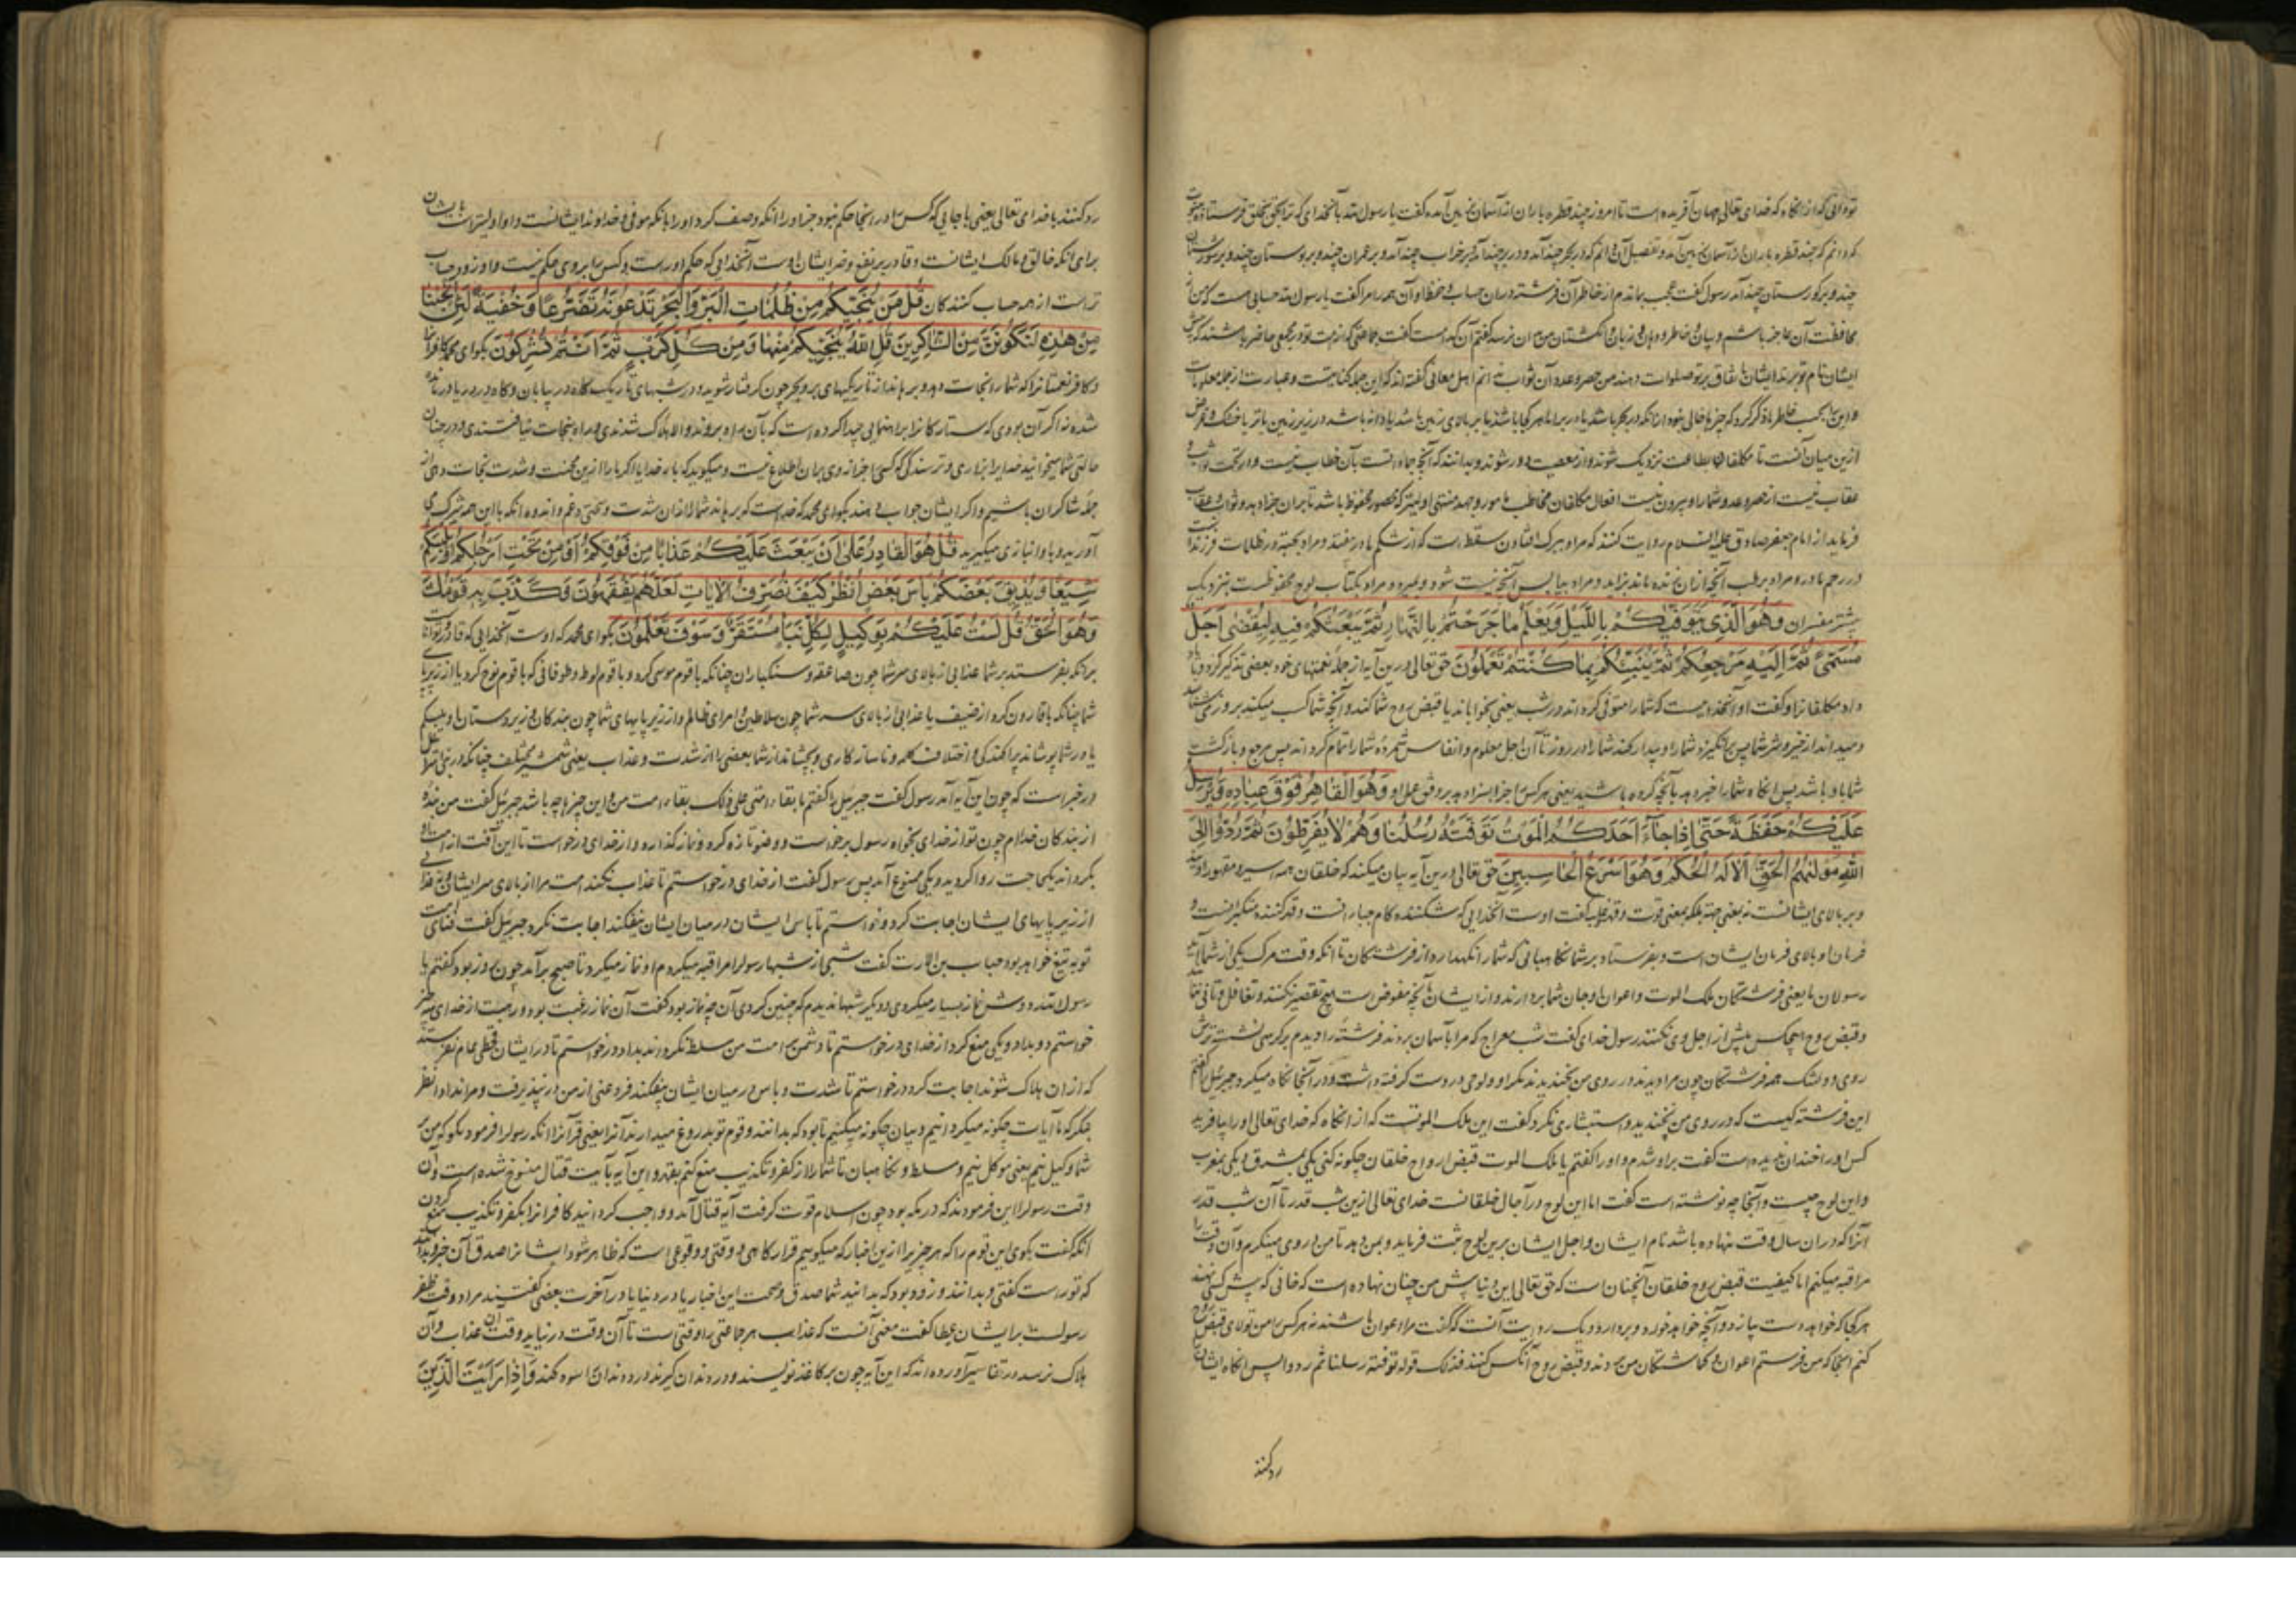 توانی که از آنگاه که خدای تعالی جهان آفریده است تا امروز چند قطره باران از آسمان بزمین آمده گفت یا رسول الله بآنخدای که ترا بحق بخلق فرستاده
که دانم که چند قطره باران از آسمان بزمین آمد و تفصیل آن دانم که در بحر چند آمد و در بر چند آمد و بر خراب چند آمد و بر عمران چند و بر بوستان چند و بر شورستان
چند و بر گورستان چند آمد رسول گفت عجب بماندم از خاطر آن فرشته در آن حساب و حفظ او آن همه را مرا گفت یا رسول الله حسابی هست که من از
محافظت آن عاجز باشم و بیان و خاطر و دهان و زبان و انگشتان من بآن نرسد گفتم آن کدام است گفت جماعتی که از امت تو در مجمعی حاضر باشند که پیش
ایشان نام تو برند ایشان باتفاق بر تو صلوات دهند من حصر و عدد آن ثواب ندانم اهل معانی گفته اند که این جمله کنایتست و عبارت از جمله معلومات
ازین میان آنست تا مکلفان بطاعت نزدیک شوند و از معصیت دور شوند و بدانند که آنچه جماد است بآن خطاب نیست و در تحت ثواب و
عقاب نیست از حصر و عدد شمار او بیرون نیست افعال مکلفان مخاطب مامور و جهد منتهی اولیتر که محصور محفوظ باشد تا بران جزا دهد و ثواب و عقاب
فرماید از امام جعفر صادق علیه السلام روایت کنند که مراد ببرک افتادن سقط است که از شکم مادر بیفتد و مراد بحبه در ظلمات فرزند است
در رحم مادر و مراد برطب آنچه از آن زنده ماند بزاید و مراد بیابس آنچه نیست شود و بمیرد و مراد بکتاب لوح محفوظست بنزدیک
بیشتر مفسران وَهُوَ الَّذِی یَتَوَفّیکُمْ بِاللَّیْلِ وَیَعْلَمُ مَا جَرَحْتُمْ بِالنَّهَارِ ثُمَّ یَبْعَثُکُمْ فِیهِ لِیُقْضٰی اَجَلٌ
مُسَمًّی ثُمَّ اِلَیْهِ مَرْجِعُکُمْ ثُمَّ یُنَبِّئُکُمْ بِمَا کُنْتُمْ تَعْمَلُونَ حق تعالی درین آیه از جمله نعمتهای خود بعضی تذکیر کرد و یاد
داد مکلفانرا و گفت او آنخداییست که شما را متوفی کرداند در شب یعنی بخواباند یا قبض روح شما کند و آنچه شما کسب میکنید بروز می شناسد
و میداند از خیر و شر شما پس برانگیزد شما را و بیدار کند شما را در روز تا آن اجل معلوم و انفاس شمرده شما را تمام کرداند پس مرجع و بازکشت
شما باو باشد پس آنگاه شما را خبر دهد بآنچه کرده باشید یعنی هر کس را جزا بسزا دهد بر وفق عمل او وَهُوَ الْقَاهِرُ فَوْقَ عِبَادِهِ وَیُرْسِلُ
عَلَیْکُمْ حَفَظَةً حَتّٰی اِذَا جَآءَ اَحَدَکُمُ الْمَوْتُ تَوَفَّتْهُ رُسُلُنَا وَهُمْ لَا یُفَرِّطُونَ ثُمَّ رُدُّوا اِلَی
اللّٰهِ مَوْلٰیهُمُ الْحَقِّ اَلَا لَهُ الْحُکْمُ وَهُوَ اَسْرَعُ الْحَاسِبِینَ حق تعالی درین آیه بیان میکند که خلقان همه اسیر و مقهور اویند
و بر بالای ایشانست نه بمعنی جهة بلکه بمعنی قوت و قهر و غلبه گفت اوست آنخدایی که شکننده کام جبارانست و قهر کننده متکبرانست و
فرمان او بالای فرمان ایشان است و بفرستاد بر شما نگاهبانی که شما را نگهدارد از فرشتگان تا آنکه وقت مرک یکی از شما آید
رسولان ما یعنی فرشتگان ملک الموت و اعوان او جان شما بردارند و از ایشان بآنچه مفوض است هیچ تقصیر نکنند و تغافل و توانی ننمایند
و قبض روح هیچکس پیش از اجل وی نکنند رسول خدای گفت شب معراج که مرا بآسمان بردند فرشته را دیدم بر کرسی نشسته ترش
روی و دلتنک همه فرشتگان چون مرا دیدند در روی من بخندیدند مکر او و لوحی در دست گرفته داشت و در آنجا نگاه میکرد جبرئیل را گفتم
این فرشته کیست که در روی من نخندید و استبشاری نکرد گفت این ملک الموتست که از آنگاه که خدای تعالی او را بیافرید
کس او را خندان ندیده است گفت براو شدم و او را گفتم یا ملک الموت قبض ارواح خلقان چگونه کنی یکی بمشرق و یکی بمغرب
و این لوح چیست و آنجا چه نوشته است گفت اما این لوح در آجال خلقانست خدای تعالی ازین شب قدر تا آن شب قدر
آنرا که در آن سال وقت نهاده باشد نام ایشان و اجل ایشان برین لوح ثبت فرماید و بمن دهد تا من در وی مینگرم و آن وقت را
مراقبه میکنم اما کیفیت قبض روح خلقان آنچنان است که حق تعالی این دنیا پیش من چنان نهاده است که خانی که پیش کسی نهند
هر کجا که خواهد دست یازد و آنچه خواهد خورد و بردارد و یک روایت آنست که گفت مرا اعوان باشند نه هر کس را من تولای قبض روح
کنم آنجا که من فرستم اعوان و گماشتگان من بروند و قبض روح آنکس کنند فذلک قوله توفته رسلنا ثم ردوا پس آنگاه ایشان را
رد کنند
رد کنند با خدای تعالی یعنی با جایی که کس را در آنجا حکم نبود جز او را آنکه وصف کرد او را بانکه مولی و خداوند ایشانست و او اولیتر است بایشان
برای آنکه خالق و مالک ایشانست و قادر بر نفع و ضر ایشان اوست آنخدائی که حکم اوراست و کس را بر وی حکم نیست و او زود حساب
تر است از همه حساب کنندگان قُلْ مَنْ یُنَجِّیکُمْ مِنْ ظُلُمَاتِ الْبَرِّ وَالْبَحْرِ تَدْعُونَهُ تَضَرُّعًا وَخُفْیَةً لَئِنْ اَنْجَیْتَنَا
مِنْ هٰذِهِ لَنَکُونَنَّ مِنَ الشَّاکِرِینَ قُلِ اللّٰهُ یُنَجِّیکُمْ مِنْهَا وَمِنْ کُلِّ کَرْبٍ ثُمَّ اَنْتُمْ تُشْرِکُونَ بگو ای محمد کافرانرا
و کافر نعمتانرا که شما را نجات دهد و برهاند از تاریکیهای بر و بحر چون گرفتار شوید و در شبهای تاریک گاه در بیابان و گاه در دریا درمانده
شده نه اگر آن بودی که ستارگانرا براهنمایی پیدا کرده است که بآن راه بروند والا هلاک شدندی و راه بنجات نیافتندی و در چنان
حالتی شما میخوانید خدایرا بزاری و ترسندگی که کسی را جز از وی بران اطلاع نیست و میگویید که بار خدایا اگر ما را ازین محنت و شدت نجات دهی از
جمله شاکران باشیم و اگر ایشان جواب دهند بگو ای محمد که خداست که برهاند شما را از آن شدت و سختی و غم و اندوه آنگه با این همه شرک می
آورید و باو انبازی میگیرید قُلْ هُوَ الْقَادِرُ عَلٰی اَنْ یَبْعَثَ عَلَیْکُمْ عَذَابًا مِنْ فَوْقِکُمْ اَوْ مِنْ تَحْتِ اَرْجُلِکُمْ اَوْ یَلْبِسَکُمْ
شِیَعًا وَیُذِیقَ بَعْضَکُمْ بَاْسَ بَعْضٍ اُنْظُرْ کَیْفَ نُصَرِّفُ الْاٰیَاتِ لَعَلَّهُمْ یَفْقَهُونَ وَکَذَّبَ بِهِ قَوْمُكَ
وَهُوَ الْحَقُّ قُلْ لَسْتُ عَلَیْکُمْ بِوَکِیلٍ لِکُلِّ نَبَاٍ مُسْتَقَرٌّ وَسَوْفَ تَعْلَمُونَ بگو ای محمد که اوست آنخدایی که قادر و تواناست
برانکه بفرستد بر شما عذابی از بالای سر شما چون صاعقه و سنگباران چنانکه با قوم موسی کرد و با قوم لوط و طوفانی که با قوم نوح کرد یا از زیر پای
شما چنانکه با قارون کرد از خسف یا عذابی از بالای سر شما چون سلاطین و امرای ظالم و از زیر پایهای شما چون بندگان و زیردستان او یلبسکم
یا در شما پوشاند پراکندگی و اختلاف کلمه و ناسازکاری و بچشاند از شما بعضی را از شدت و عذاب یعنی شمشیر مختلف چنانکه در بنی اسرائیل
در خبر است که چون این آیه آمد رسول گفت جبرئیل را گفتم ما بقاء امتی علی ذلک بقاء امت من با این چیزها چه باشد جبرئیل گفت من بنده
از بندگان خدام چون تو از خدای بخواه رسول برخاست و وضو تازه کرد و نماز گذارد و از خدای درخواست تا این آفت از امت او
بگرداند یکی اجابت روا گردید و یکی ممنوع آمد پس رسول گفت از خدای درخواستم تا عذاب نکند امت مرا از بالای سر ایشان و نه
از زیر پایهای ایشان اجابت کرد و خواستم تا باس ایشان در میان ایشان نیفکند اجابت نکرد جبرئیل گفت فنای امت
تو به تیغ خواهد بود خباب بن الارت گفت شبی از شبها رسولرا مراقبه میکردم او نماز میکرد تا صبح برآمد چون روز بود گفتم یا
رسول الله دوش نماز بسیار میکردی و دیگر شبها ندیدم که چنین کردی آن چه نماز بود گفت آن نماز رغبت بود و رهبت از خدای سه چیز
خواستم دو بداد و یکی منع کرد از خدای درخواستم تا دشمن بر امت من مسلط نگرداند بداد و درخواستم تا در ایشان قحطی عام نفرستد
که از آن هلاک شوند اجابت کرد و درخواستم تا شدت و باس در میان ایشان نیفکند فرد عنی از من درنپذیرفت و مرا نداد انظر
بنگر که ما آیات چگونه میگردانیم و بیان چگونه میکنیم تا بود که بدانند و قوم تو بدروغ میدارند آنرا یعنی قرآنرا آنگه رسولرا فرمود بگو که من
شما وکیل نیم یعنی موکل نیم و مسلط و نگاهبان تا شما را از کفر و تکذیب منع کنم بقهر و این آیه بآیت قتال منسوخ شده است و آن
وقت رسولرا این فرمودند که در مکه بود چون اسلام قوت گرفت آیه قتال آمد و واجب کرد انید کافرانرا از کفر و تکذیب منع کردن
آنگه گفت بگوی این قوم را که هر چیزیرا ازین اخبار که میگوییم قرارگاهی و وقتی و وقوعی است که ظاهر شود ایشانرا صدق آن خبر و بدانند
که تو راست گفتی و بدانند و زود بود که بدانید شما صدق و صحت این اخبار یا در دنیا یا در آخرت بعضی گفتند مراد وقت ظفر
رسولست بر ایشان عطا گفت معنی آنست که عذاب هر جماعتی را وقتی است تا آن وقت درنیاید وقت آن عذاب و آن
هلاک نرسد در تفاسیر آورده اند که این آیه چون بر کاغذ نویسند و در دندان گیرند درد دندان آسوده کند وَاِذَا رَاَیْتَ الَّذِینَ